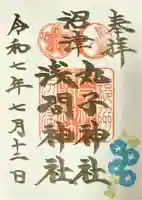 奉拝
沼津
丸子神社
浅間神社
令和七年七月十二日